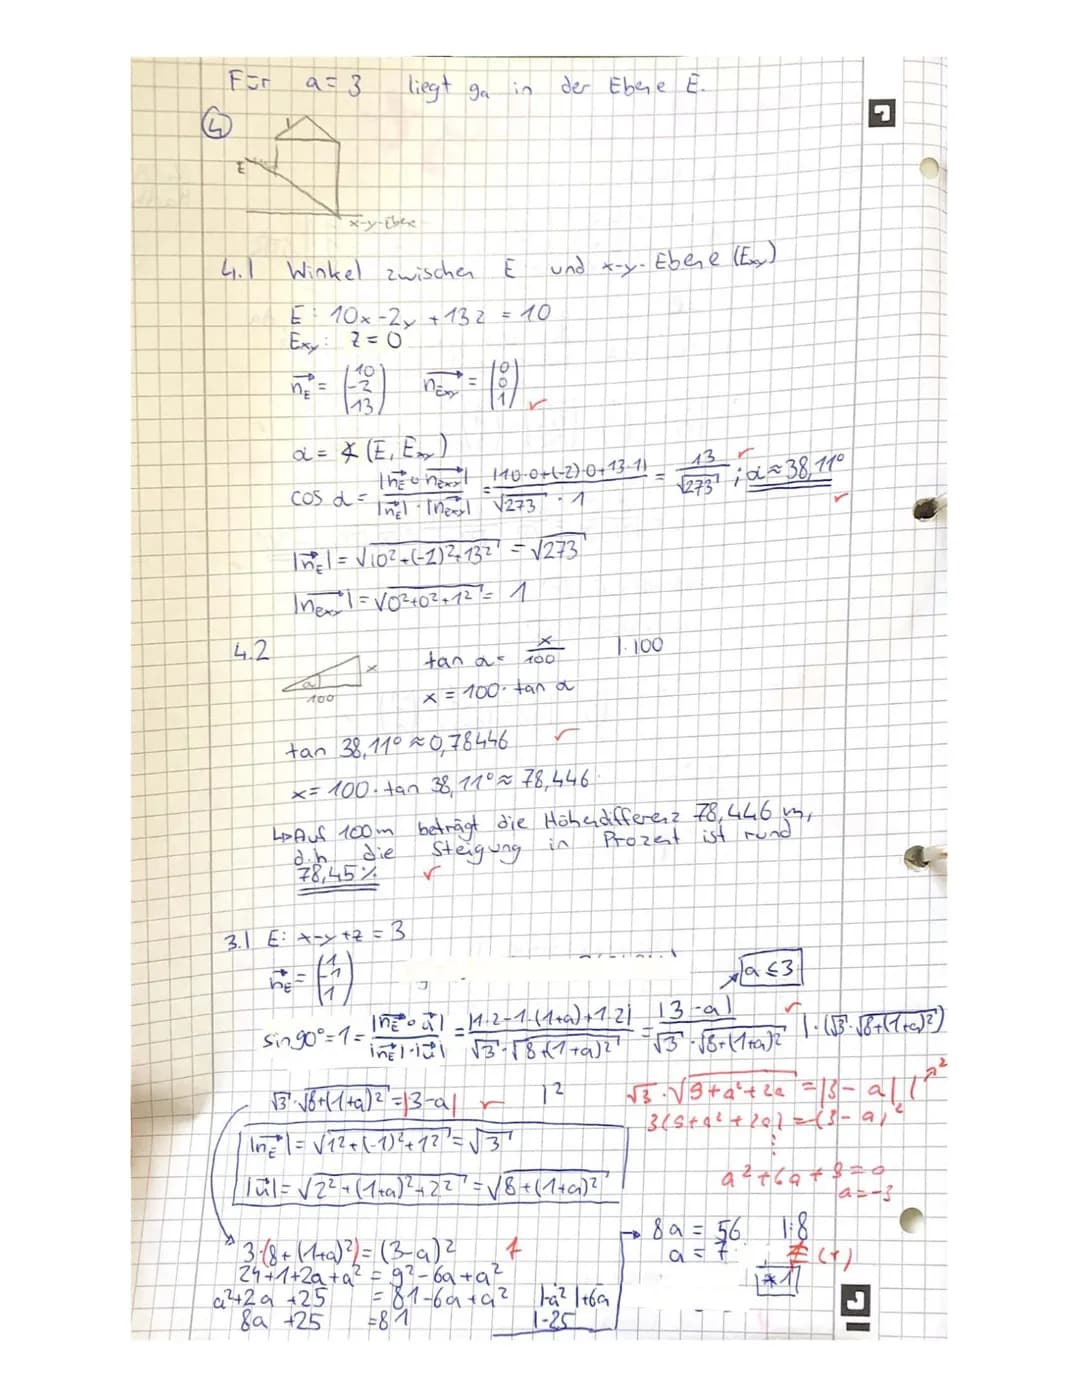 Für a = 3 liegt ga in der Ebene E.
4
E
x-y-Ebene
4.1 Winkel zwischen E und x-y-Ebene (Exy)
E: 10x -2y +13z = 10
Exy: z = 0
nE = (10 -2 13) nExy = (0 0 1) ✓
α = ∡ (E, Exy)
cos α = |nE ∘ nExy| / |nE| · |nExy| = |10·0+(-2)·0+13·1| / √273 · 1 = 13/√273 ; α ≈ 38,11° ✓
|nE| = √10²+(-2)²+13² = √273
|nExy| = √0²+0²+1² = 1
4.2 tan α = x/100 |·100
α x 100
x = 100 · tan α
tan 38,11° ≈ 0,78446 ✓
x = 100 · tan 38,11° ≈ 78,446
↳ Auf 100m beträgt die Höhendifferenz 78,446 m,
d.h. die Steigung in Prozent ist rund
78,45% ✓
3.1 E: x-y+z = 3
nE = (1 -1 1) a ≤ 3
sin 90° = 1 = |nE ∘ u| / |nE|·|u| = |1·2-1·(1+a)+1·2| / √3·√8+(1+a)² = |3-a| / √3·√8+(1+a)² ✓ |·(√3·√8+(1+a)²)
√3·√8+(1+a)² = |3-a| ✓ |²
√3·√9+a²+2a = |3-a| |²
3(9+a²+2a) = (3-a)²
|nE| = √1²+(-1)²+1² = √3
|u| = √2²+(1+a)²+2² = √8+(1+a)²
a²+6a+9=0
a=-3
3·(8+(1+a)²) = (3-a)² f
24+1+2a+a² = 9²-6a+a²
a²+2a+25 = 81-6a+a² |-a² |+6a
8a +25 =81 |-25
8a = 56 |:8
a = 7 f (✓)
*1